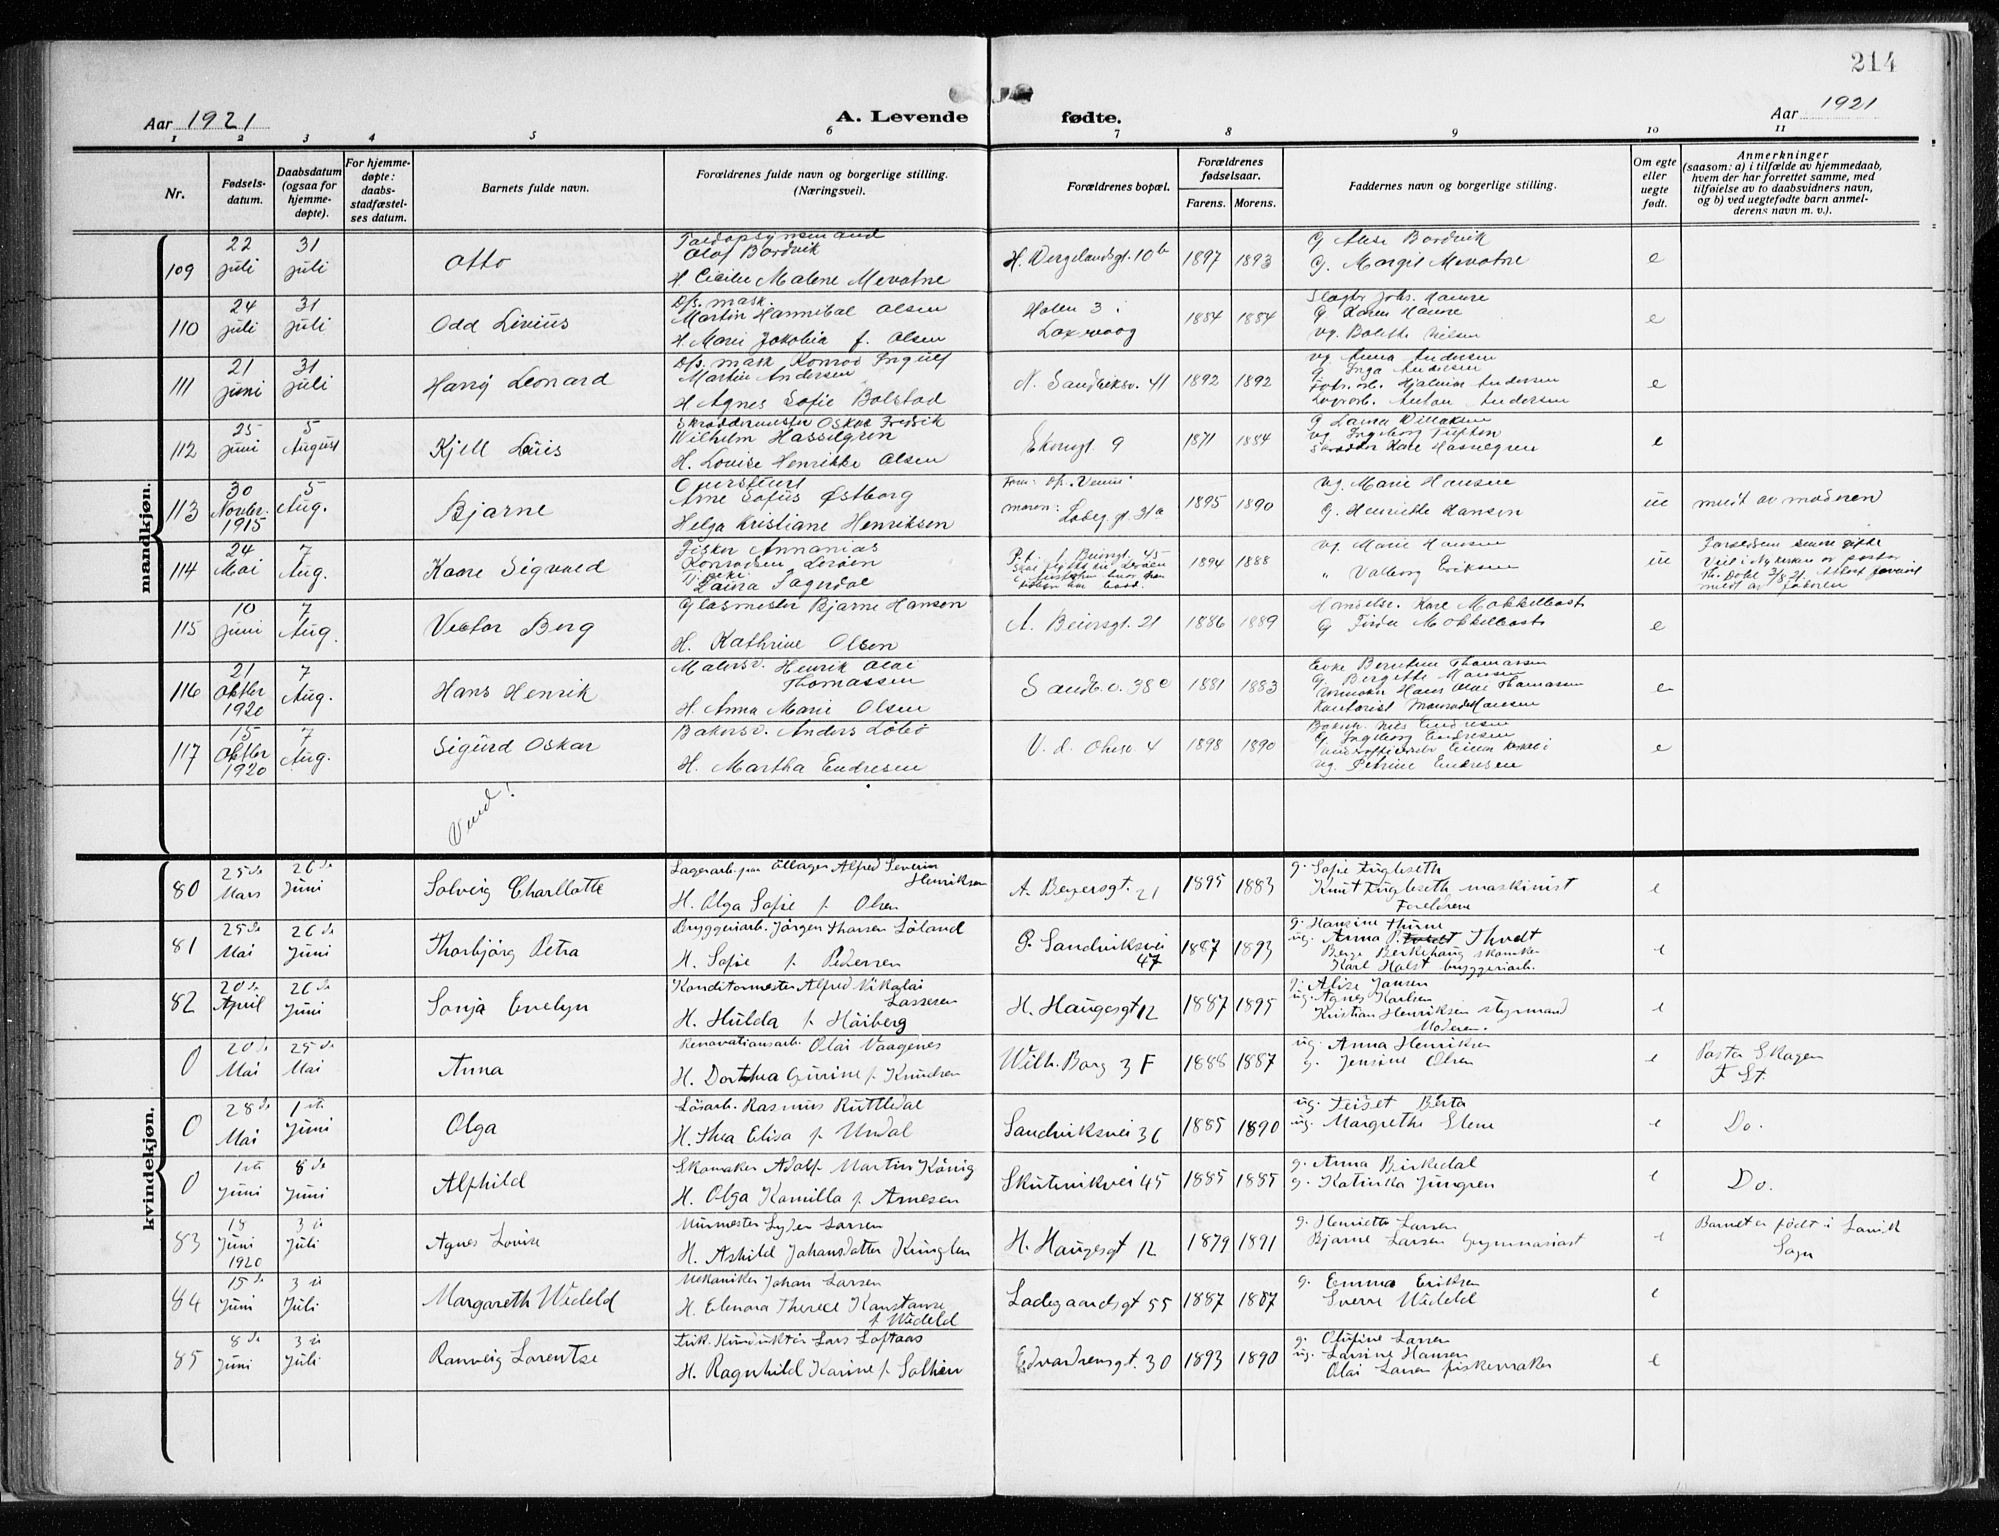 214
Aar 1921
A. Levende fødte.
Aar 1921
1 2 3 4 5 6 7 8 9 10 11
Nr.
Fødsels-
datum.
Daabsdatum
(ogsaa for
hjemme-
døpte).
For hjemme-
døpte:
daabs-
stadfæstel-
ses datum.
Barnets fulde navn.
Forældrenes fulde navn og borgerlige stilling.
(Næringsvei).
Forældrenes bopæl.
Forældrenes
fødselsaar.
Farens. Morens.
Faddernes navn og borgerlige stilling.
Om egte
eller
uegte
født.
Anmerkninger
(saasom: a) i tilfælde av hjemmedaab,
hvem der har forrettet samme, med
tilføielse av to daabsvidners navn,
og b) ved uegtefødte barn anmel-
derens navn m. v.).
mandkjøn.
109
22
juli
31
juli
Otto
Toldopsynsmand
Olof Bordvik
H. Cecilie Malene Mevatne
H. Vergelandsgt. 10b
1897 1893
G Alise Bordvik
G. Margit Mevatne
e
110
24
juli
31
juli
Odd Livius
Dfs. mask.
Martin Hannibal Olsen
H. Marie Jakobia f. Olsen
Holen 3 i
Laxevaag
1884 1884
Slagter Johs. Hauge
G Karen Hauge
ug. Bolette Nilsen
e
111
21
juni
31
juli
Harry Leonard
Dfs. mask Konrad Ingulf
Martin Andersen
H Agnes Sofie Bolstad
N. Sandviksv. 41
1892 1892
ug. Anna Andersen
G Inga Andersen
Fabr. arb. Hjalmar Andersen
Lagerarb. Anton Andersen
e
112
25
juni
5
August
Kjell Luis
Skræddermester Oskar Fredrik
Wilhelm Hasselgren
H. Louise Henrikke Olsen
Ekerengt 9
1871 1884
G Laura Villaksen
ug. Ingeborg Tufton
Skrædder Kare Hasselgren
e
113
30
Novbr.
1915
5
Aug.
Bjarne
Overstuert
Arne Sofus Østborg
Helga Kristiane Henriksen
Faren: D/s. "Venus"
moren: Ladeg. gt. 31a
1895 1890
ug. Marie Hansen
G. Henriette Hansen
ue
meldt av moderen
114
24
Mai
7
Aug.
Kaare Sigvald
Fisker Annanias
Konradsen Lerøen
Pike
Laura Fagerdal
1894 1888
ug. Marie Hansen
" Valborg Eriksen
ue
Forældrene senere gifte
meldt av faderen
115
10
juni
7
Aug.
Victor Berg
Glasmester Bjarne Hansen
H. Kathrine Olsen
A. Beiersgt. 21
1886 1889
Handelsr. Kare Mokkelbost
G Tilda Mokkelbost
e
116
21
Oktbr
1920
7
Aug.
Hans Henrik
Malersv. Henrik Olai
Thomassen
H. Anna Marie Olsen
Sandb. v. 38c
1881 1883
Enke Berntine Thomassen
G. Bergitte Monsen
Urmaker Hans Olai Thomassen
Kontorist Monrad Hansen
e
117
15
Oktbr
1920
7
Aug.
Sigurd Oskar
Bakersv. Anders Løbø
H. Martha Endresen
1898 1890
Bakersv. Nils Endresen
G Ingeborg Endresen
ug. Petrine Endresen
e
Vend!
kvindekjøn.
80
25de
Mars
26de
Juni
Solveig Charllotte
Lagerarb. paa Øllager Alfred Severin
Henriksen
H. Olga Sofie f. Olsen
A. Beyersgt. 21
1895 1883
g. Sofie Fugleseth
Knut Fugleseth maskinist
Foreldrene
e
81
25de
Mai
26de
Juni
Thorbjörg Petra
Bryggeriarb. Jörgen Thorsen Löland
H. Sofie f. Pedersen
G. Sandviksvei
47
1887 1893
g. Hansine Thune
ug. Anna P. Thvedt
Berge Berkehaug skomaker
Karl Holst bryggeriarb.
e
82
20de
April
26de
Juni
Sonja Evelyn
Konditormester Alfred Nikolai
Lassesen
H. Hulda f. Höiberg
H. Haugesgt 12
1887 1895
g. Alise Jansen
ug. Agnes Karlsen
Kristian Henriksen styrmand
Moderen.
e
0
20de
Mai
25de
Mai
Anna
Renovationsarb. Olai Vaagenes
H. Dorthea Gurine f. Knudsen
Wilh. Borg 3 F
1888 1887
ug. Anna Henriksen
g. Jensine Olsen
e
Pastor Skagen
F St.
0
28de
Mai
1ste
Juni
Olga
Lösarb. Rasmus Ruttledal
H. Thea Elisa f. Undal
Sandviksvei 36
1885 1890
ug. Teiset Berta
ug. Margrethe Stene
e
Do.
0
1ste
Juni
8de
Juni
Alfhild
Skomaker Adolf Martin König
H. Olga Kamilla f. Arnesen
Skutevikvei 45
1885 1885
g. Anna Birkedal
g. Katinka Jungren
e
Do.
83
18
Juni
1920
3die
Juli
Agnes Lovise
Murmester Syver Larsen
H. Ashild Johansdatter Kunglen
H. Haugesgt 12
1879 1891
g. Henriette Larsen
Bjarne Larsen Gymnasiast
e
Barnet er født i Lavik
Sogn
84
15de
Juni
3die
Juli
Margareth Wideld
Mekaniker Johan Larsen
H. Elenora Therece Konstanse
f. Wideld
Ladegaardsgt 55
1887 1887
g. Emma Eriksen
Sverre Wideld
e
85
8de
Juni
3die
Juli
Ranveig Lorentse
Trik. Konduktör Lars Loftaas
H. Ragnhild Karine f. Solhein
Edvardsensgt. 30
1893 1890
g. Olufine Larsen
ug. Larsine Hansen
Olai Larsen fiskemaker
e